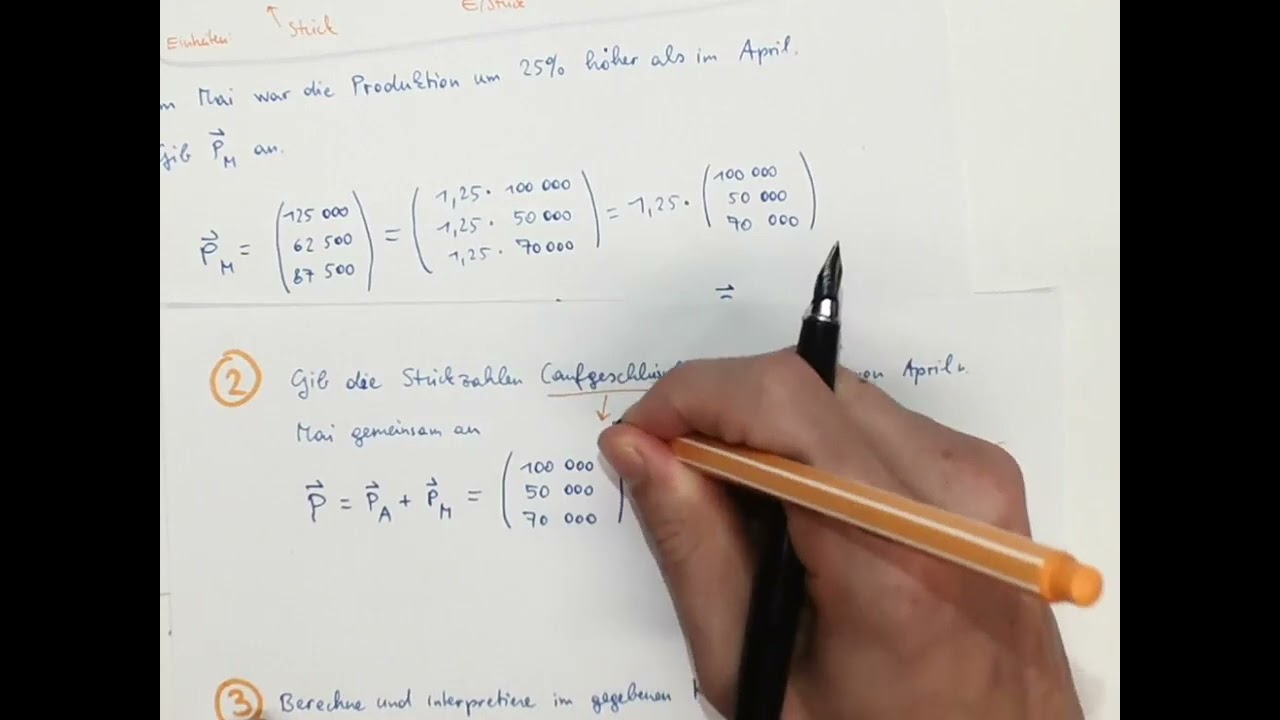 €/Stück
↑ Stück
Einheiten:
m Mai war die Produktion um 25% höher als im April.
gib P⃗_M an.
P⃗_M = (125 000 62 500 87 500) = (1,25 · 100 000 1,25 · 50 000 1,25 · 70 000) = 1,25 · (100 000 50 000 70 000)
=
2 Gib die Stückzahlen von April u.
Mai gemeinsam an
P⃗ = P⃗_A + P⃗_M = (100 000 50 000 70 000)
3 Berechne und interpretiere im gegebenen